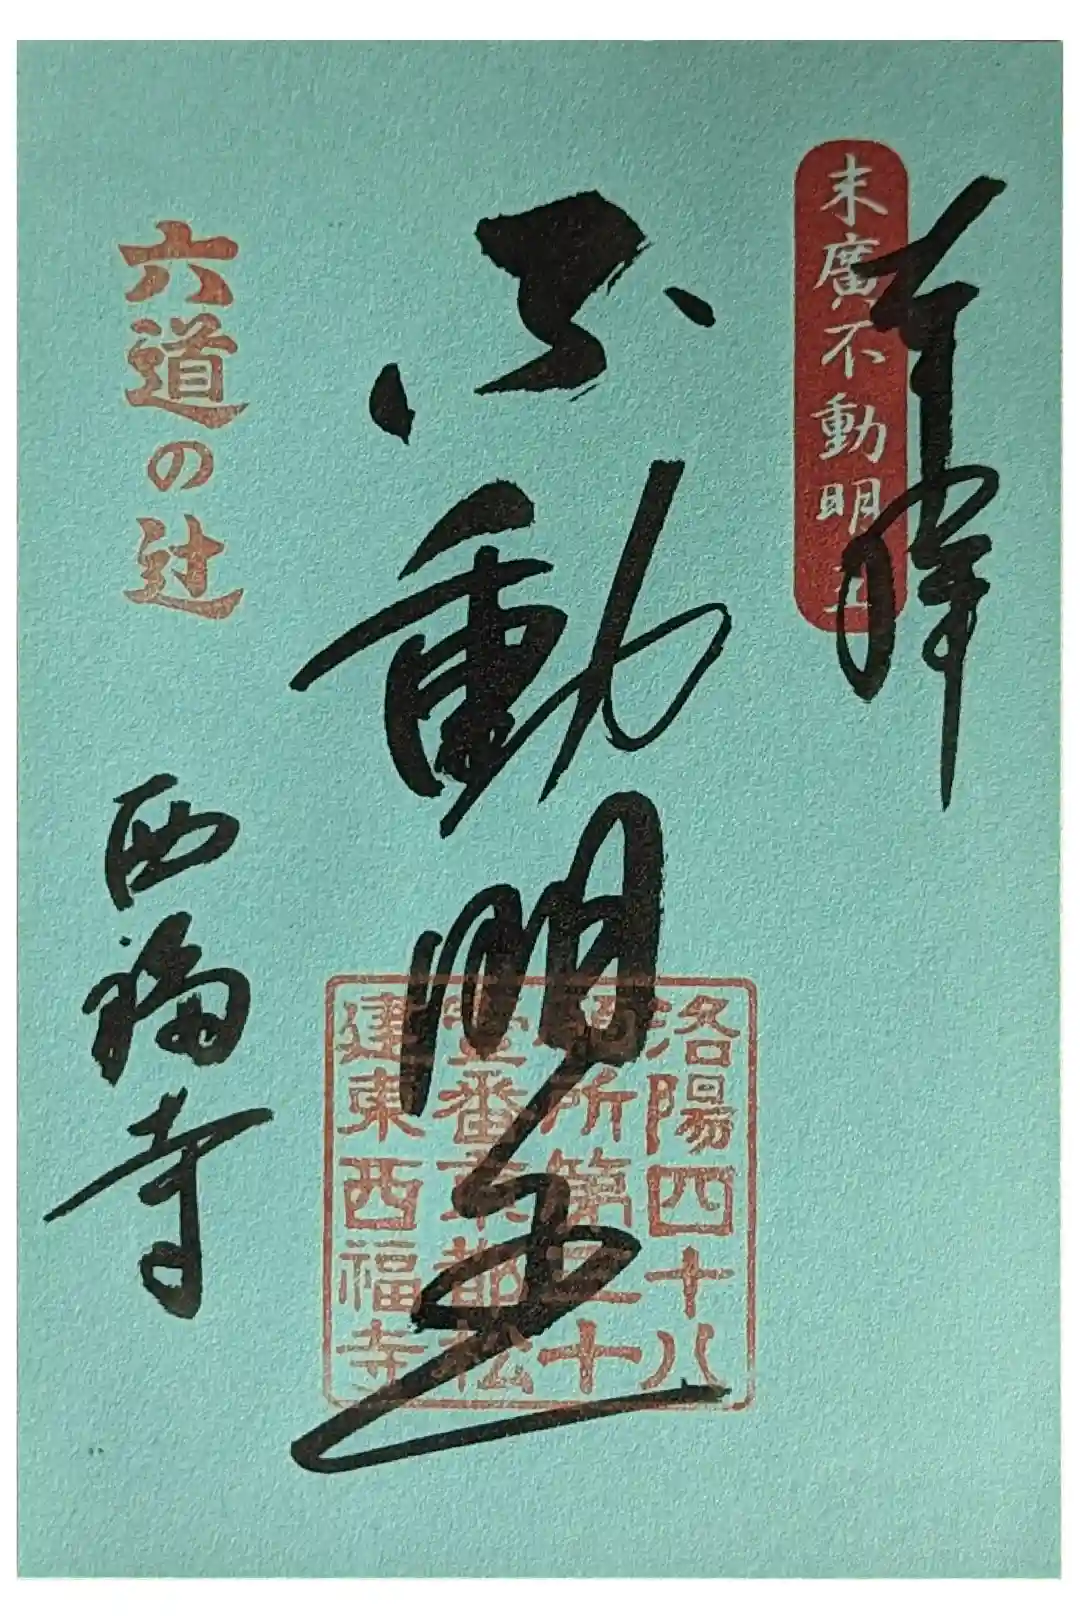 奉拝
末廣不動明王
不動明王
洛陽四十八
所第四十
壹番京都松
建東西福寺
六道の辻
西福寺